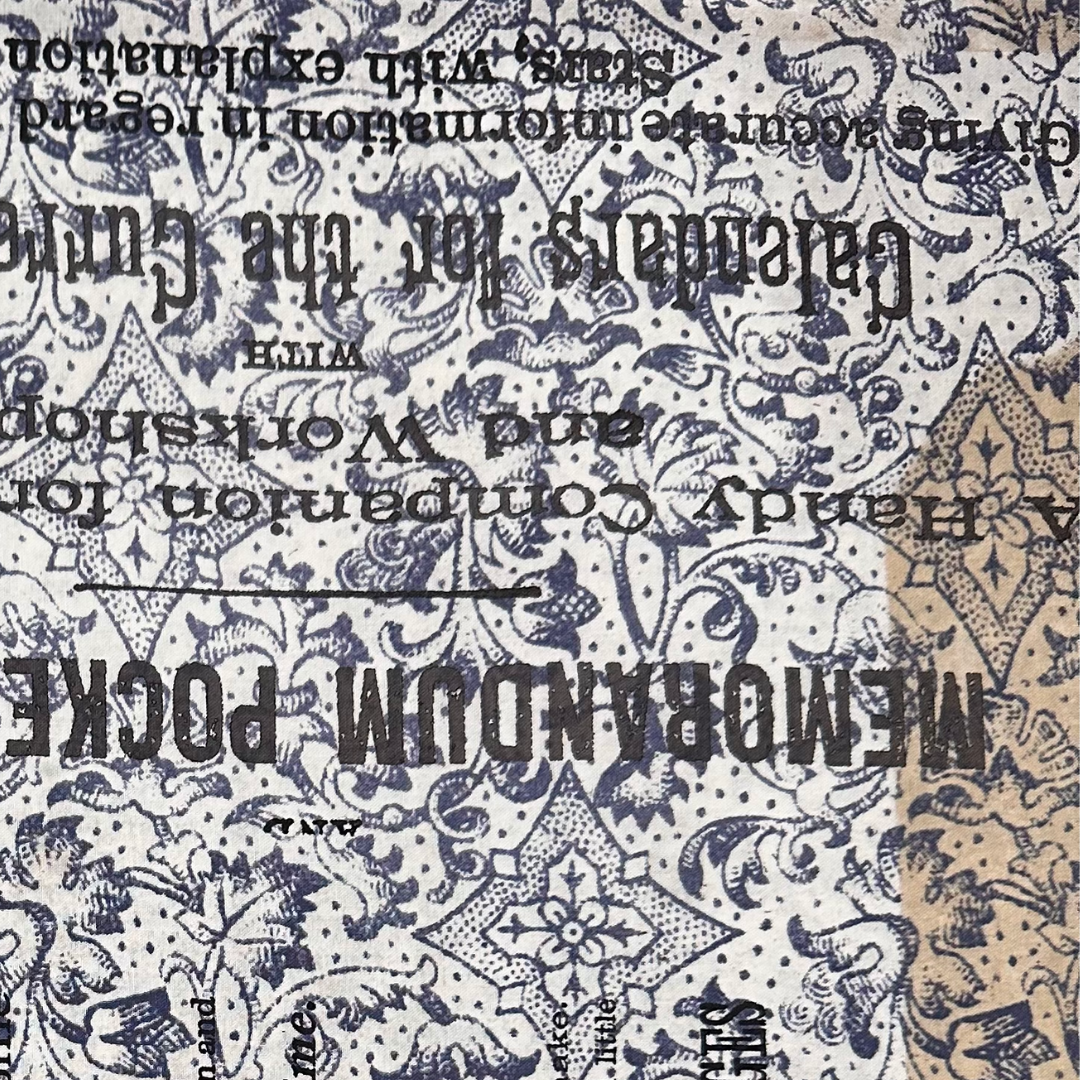 AND
MEMORANDUM POCKE
A Handy Companion for
and Workshop
WITH
Calendars for the Curre
Giving accurate information in regard
Stars, with explanation
n and
me.
ake.
little